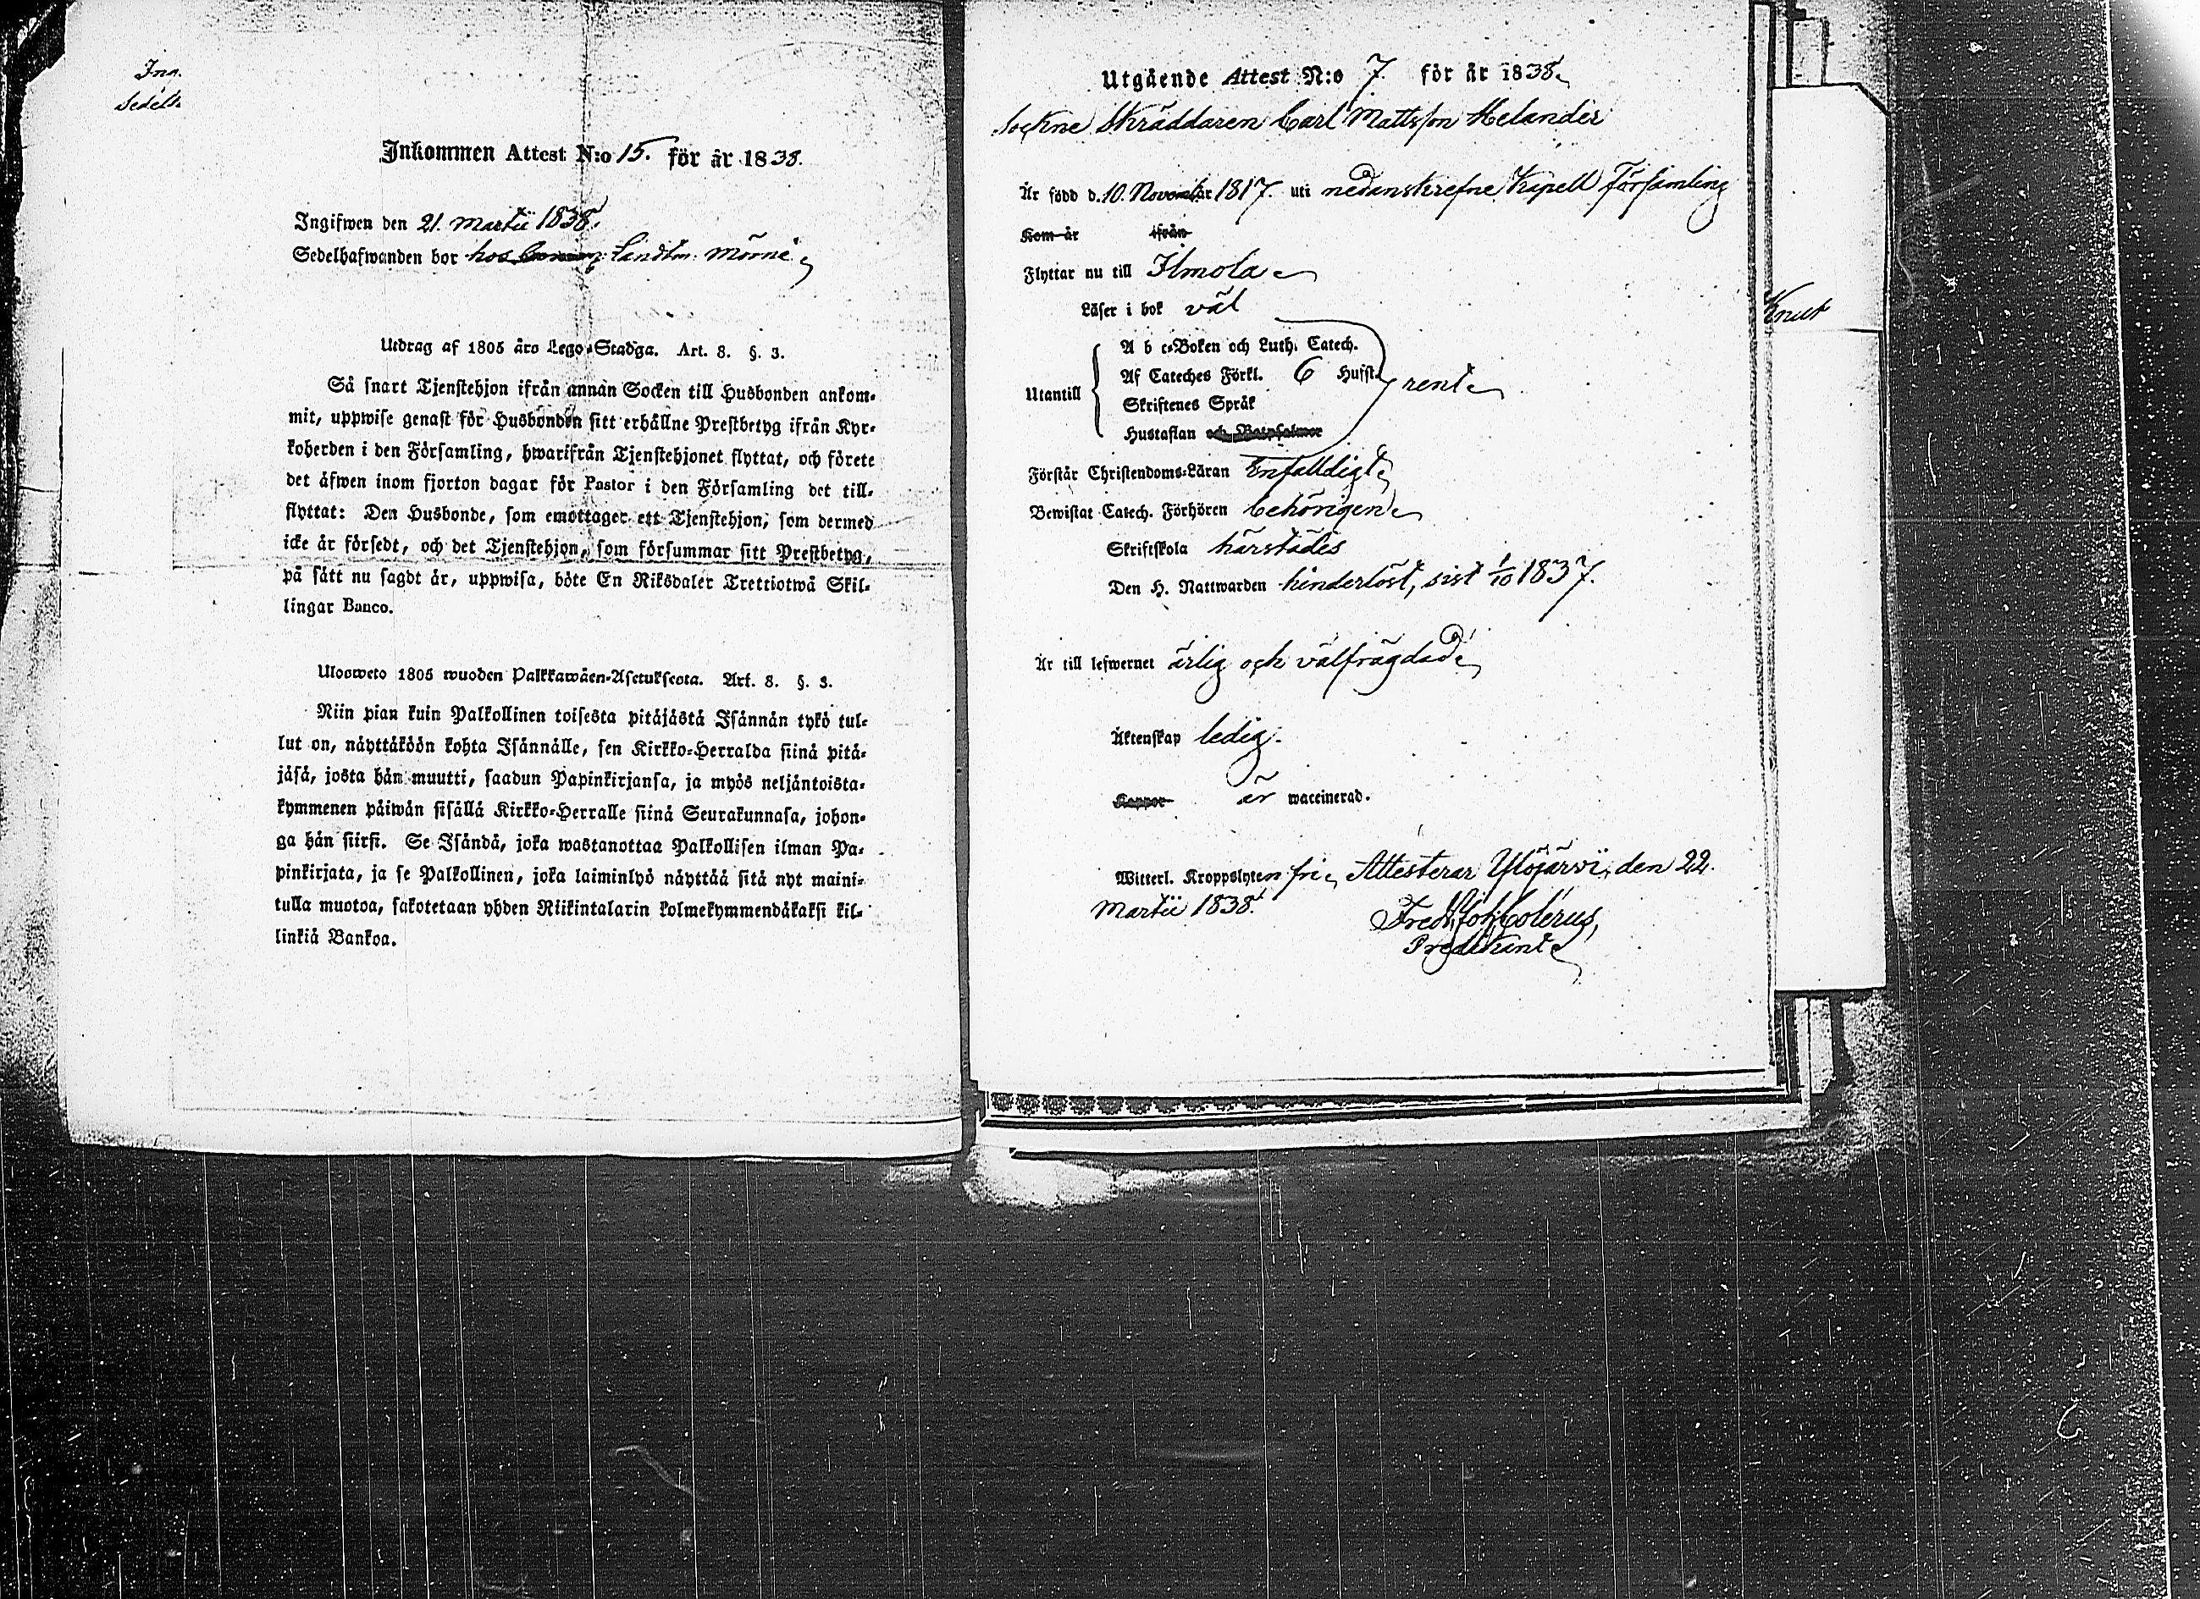 Ing.
Sedelh
Inkommen Attest N:o 15. för år 1838.
Ingifwen den 21. Martii 1838.
Sedelhafwanden bor hos Landtm: Mörne
Utdrag af 1805 års Lego-Stadga. Art. 8. §. 3.
Så snart Tjenstehjon ifrån annan Socken till Husbonden ankom-
mit, uppwise genast för Husbonden sitt erhållne Prestbetyg ifrån Kyr-
koherden i den Församling, hwarifrån Tjenstehjonet flyttat, och förete
det äfwen inom fjorton dagar för Pastor i den Församling det till-
flyttat: Den Husbonde, som emottager ett Tjenstehjon, som dermed
icke är försedt, och det Tjenstehjon, som försummar sitt Prestbetyg,
på sätt nu sagdt är, uppwisa, böte En Riksdaler Trettiotwå Skil-
lingar Banco.
Uloosweto 1805 wuoden Palkkawäen-Asetuksesta. Art. 8. §. 3.
Niin pian kuin Palkollinen toisesta pitäjästä Isännän tykö tul-
lut on, näyttäköön kohta Isännälle, sen Kirkko-Herralda siinä pitä-
jäsä, josta hän muutti, saadun Papinkirjansa, ja myös neljäntoista-
kymmenen päiwän sisällä Kirkko-Herralle siinä Seurakunnasa, johon-
ga hän siirsi. Se Isändä, joka wastanottaa Palkollisen ilman Pa-
pinkirjata, ja se Palkollinen, joka laiminlyö näyttää sitä nyt maini-
tulla muotoa, sakotetaan yhden Riikintalarin kolmekymmendäkaksi kil-
linkiä Bankoa.
Utgående Attest N:o 7. för år 1838
Sockne Skräddaren Carl Mattsson Melander
Är född d. 10. November 1817. uti nedanskrefne Kapell Församling
Kom år ifrån
Flyttar nu till Ilmola
Läser i bok väl
A b c-Boken och Luth. Catech.
Af Cateches Förkl. 6 Hufst.
Utantill rent
Skriftenes Språk
Hustaflan och Botpsalmer
Förstår Christendoms-Läran Enfalldigt
Bewistat Catech. Förhören behörigen
Skriftskola härstädes
Den H. Nattwarden hinderlöst, sist 1/10 1837.
Är till lefwernet ärlig och välfrägdad
Äktenskap ledig.
Koppor är waccinerad.
Witterl. Kroppslyten fri Attesterar Ylöjärvi, den 22.
Martii 1838.
Fredr. Joh. Colerus,
Predikant
Knut